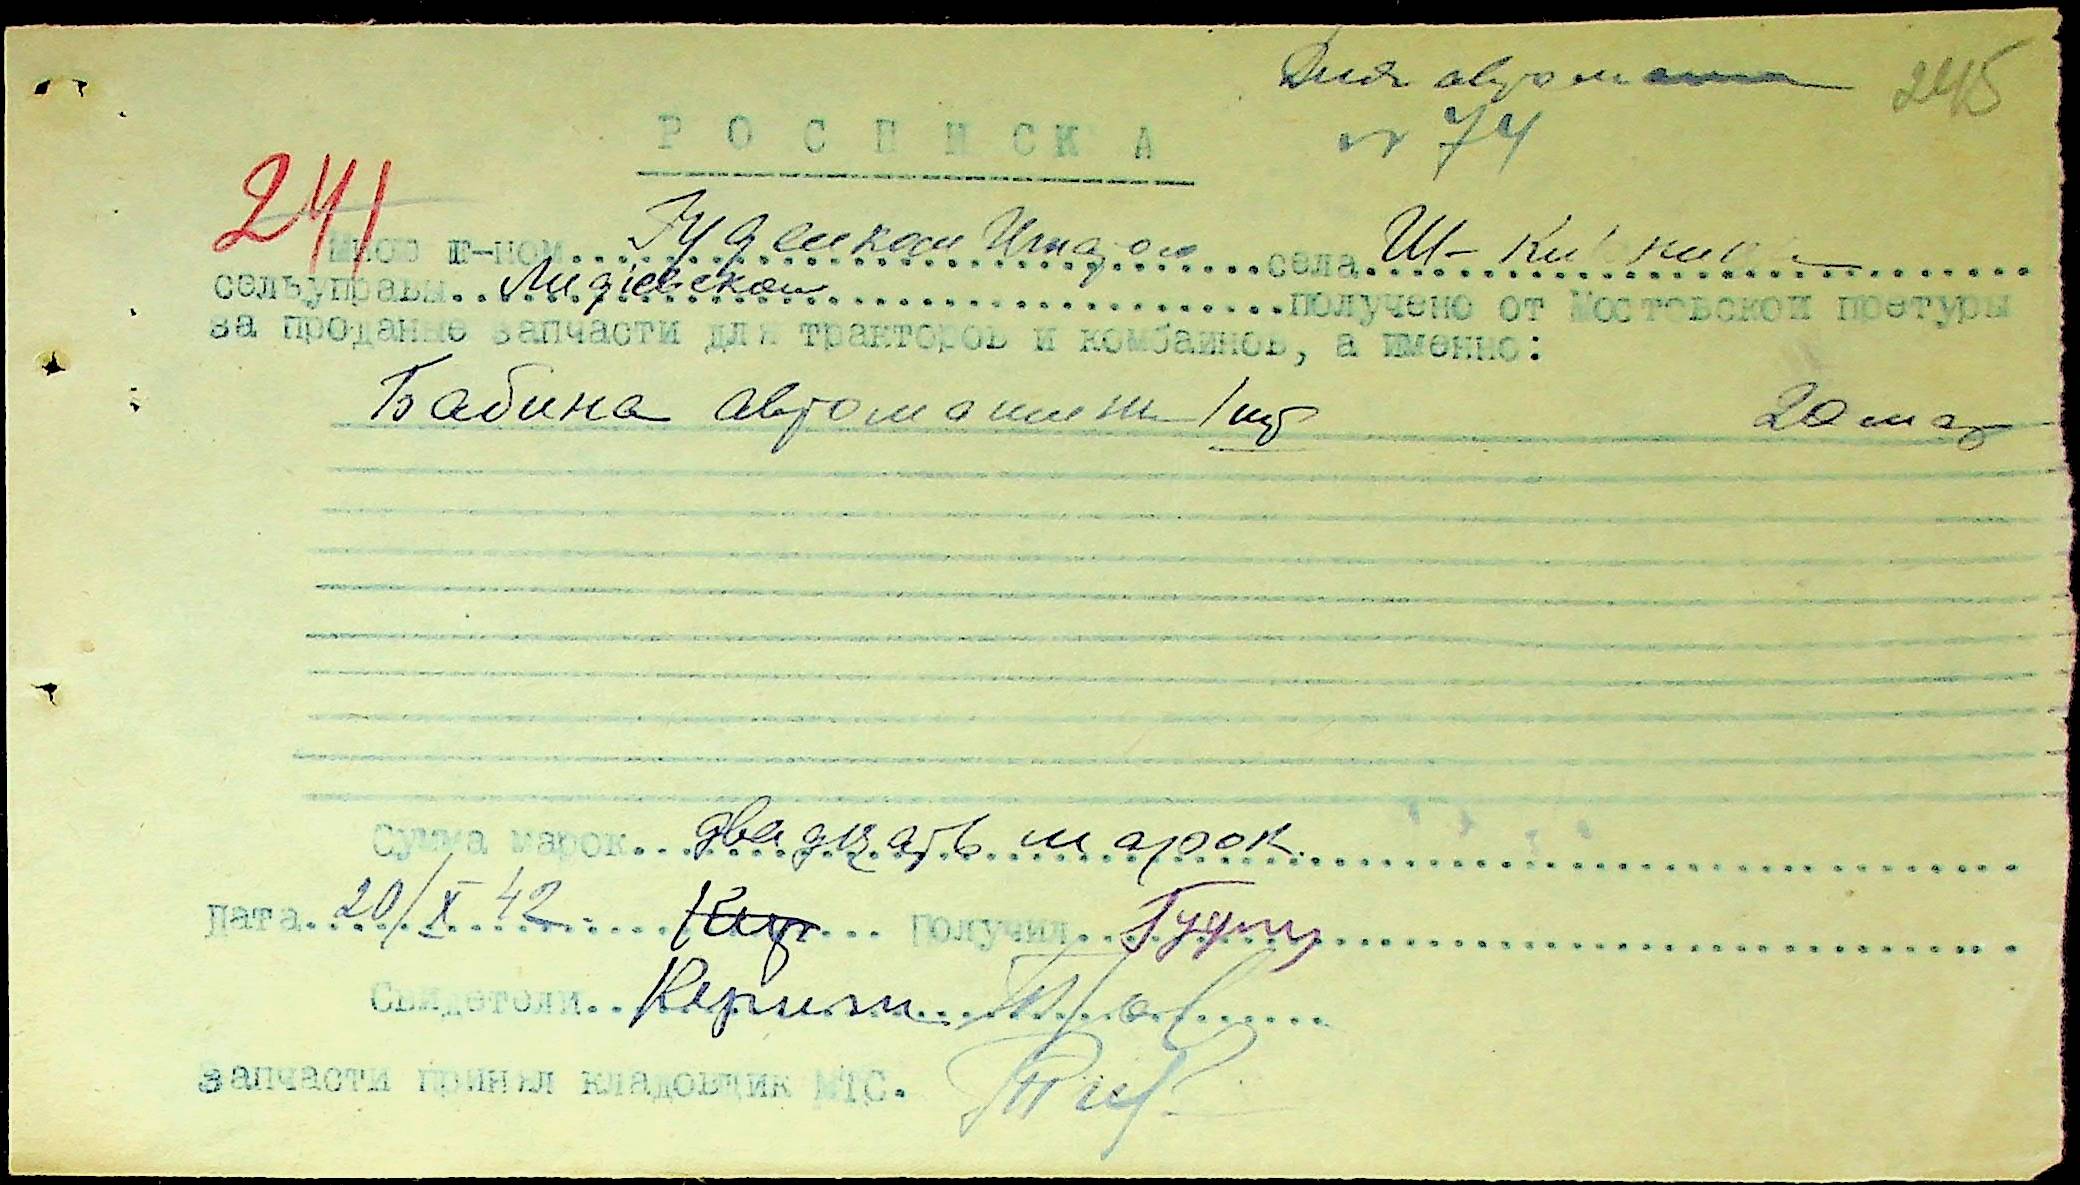 Для автома
245
№ 74
РОСПИСКА
241
Мною г-ном Гуденком Игнатом села Ш-
сельуправы Лидіевской получено от Мостовской претуры
за проданые запчасти для тракторов и комбайнов, а именно:
Бабина автомашин 1 шт 20 мар
Сумма марок двадцать марок.
Дата 20/X 42 Получил
Свидетели
Запчасти принял кладовщик МТС.